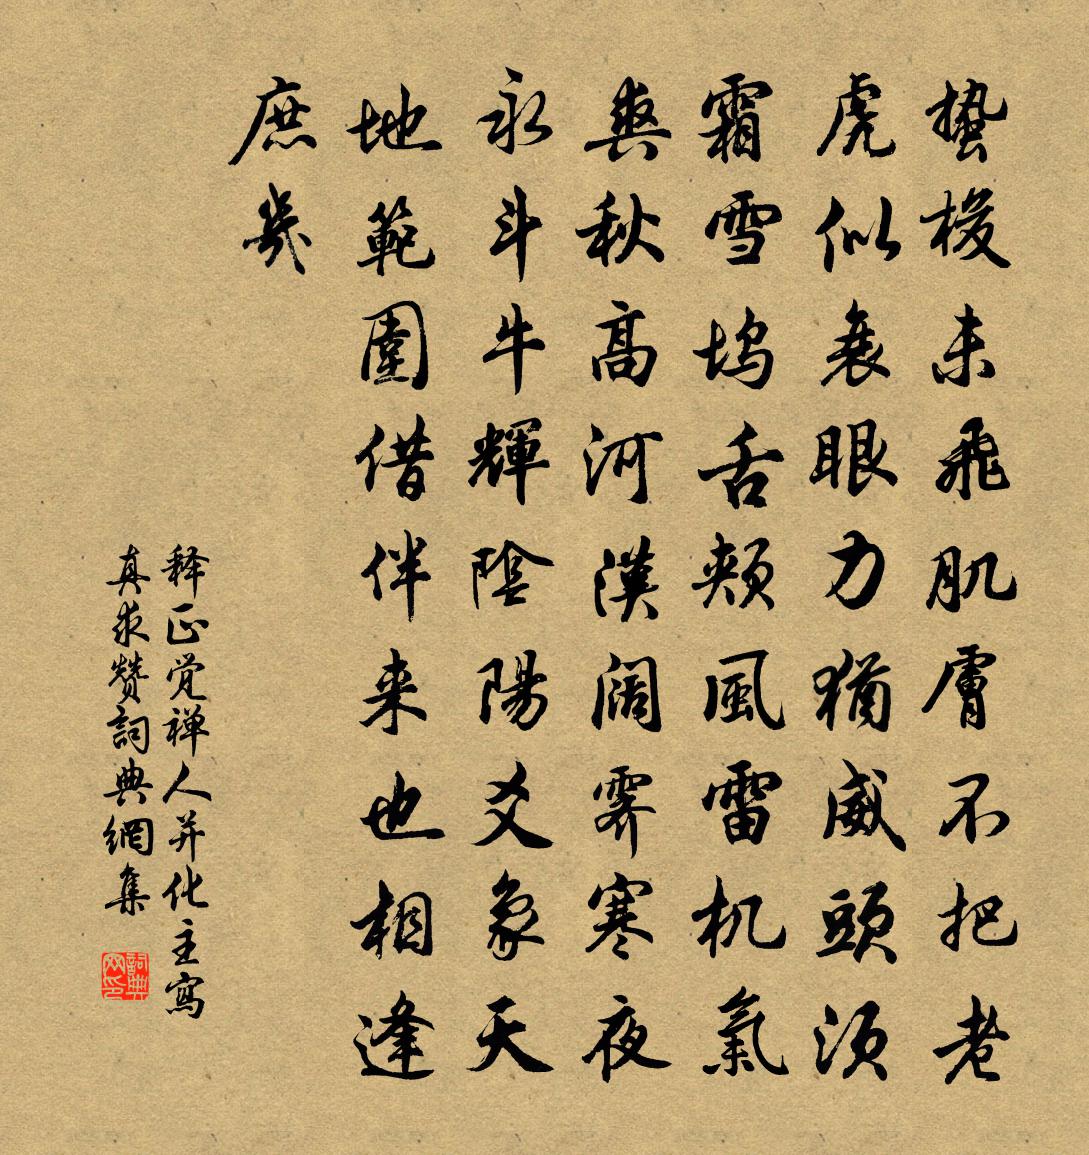 蟄梭未飛肌膚不把老
虎似衰眼力猶威頭須
霜雪塢舌頰風雷机氣
爽秋高河漢闊霽寒夜
永斗牛輝陰陽爻象天
地範圍借伴来也相逢
庶幾
释正觉禅人并化主寫
真求赞詞典網集
詞典网印